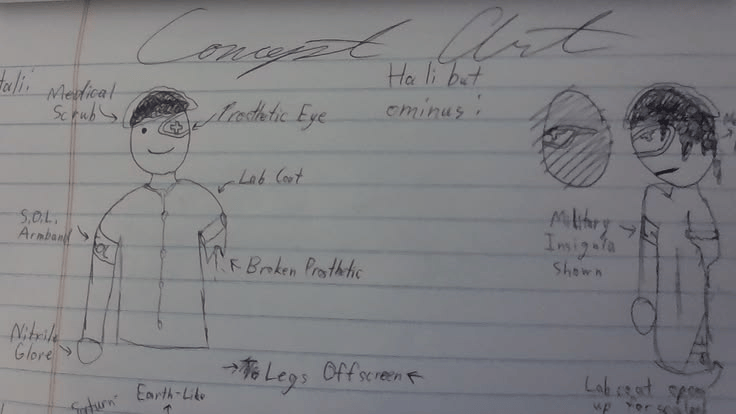 Concept Art
Hali:
Medical
Scrub
Prosthetic Eye
Lab Coat
S.O.L.
Armband
Broken Prosthetic
Nitrile
Glove
Legs Offscreen
Saturn
Earth-Like
Hali but
ominus:
Military
Insignia
Shown
Lab coat
up